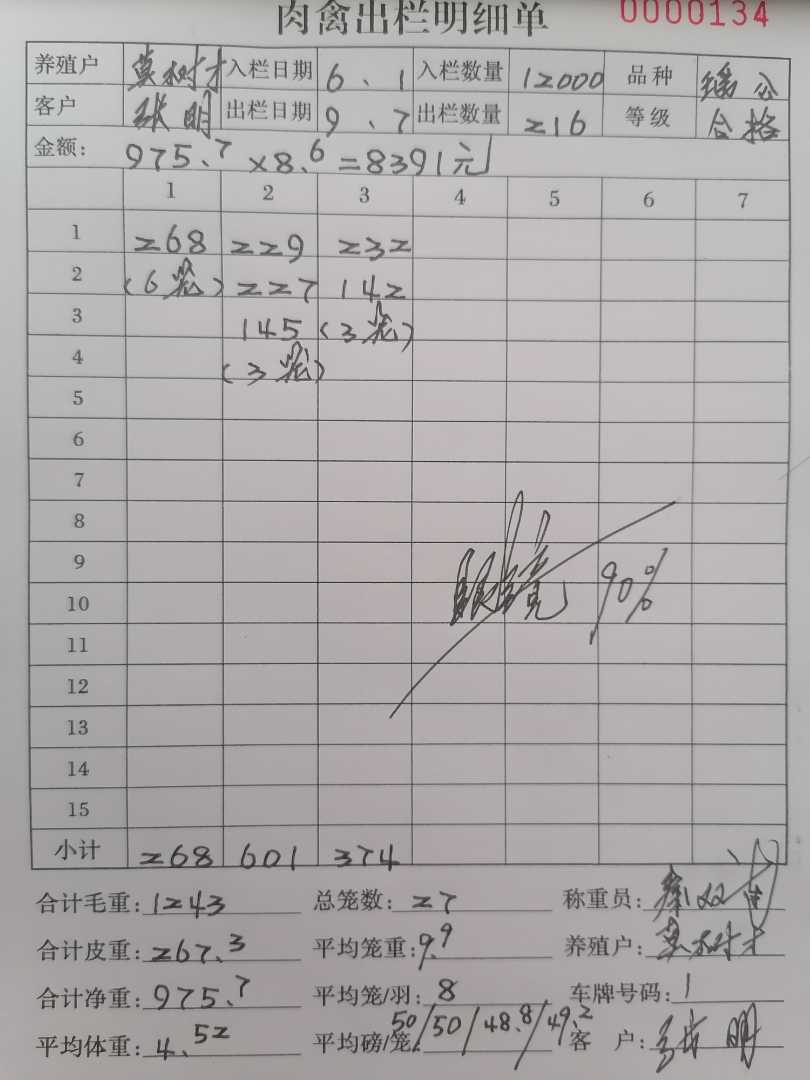 肉禽出栏明细单 0000134
养殖户 莫树才 入栏日期 6、1 入栏数量 12000 品种 瑶公
客户 张明 出栏日期 9、7 出栏数量 216 等级 合格
金额: 975.7×8.6=8391元
1 2 3 4 5 6 7
1 268 229 232
2 (6笼) 227 142
3 145 (3笼)
4 (3笼)
5
6
7
8
9 眼镜 90%
10
11
12
13
14
15
小计 268 601 374
合计毛重: 1243 总笼数: 27 称重员:
合计皮重: 267.3 平均笼重: 9.9 养殖户: 莫树才
合计净重: 975.7 平均笼/羽: 8 车牌号码: 1
平均体重: 4.52 平均磅/笼: 50/50/48.8/49.2 客户: 张明